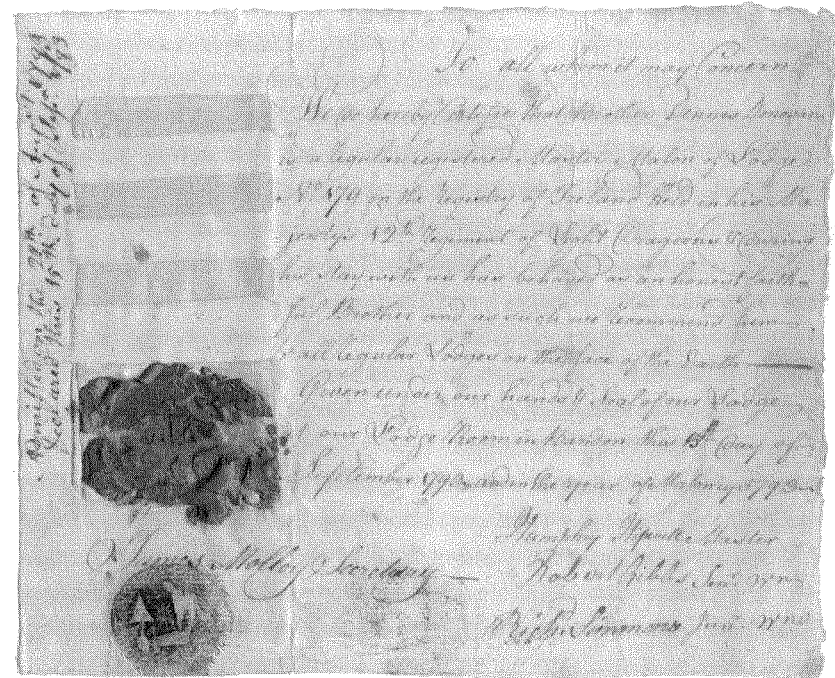 To all whom it may Concern
We do hereby Certifie that Brother Dennis Donovan
is a regular registered Master Mason of Lodge
No 179 in the Country of Ireland Held in his Ma
jestys 12th Regiment of Light Dragoons & During
his Stay with us has behaved as an honest faith
full Brother and as such we Recommend him
to all regular Lodges on the face of the Earth
Given under our hands & Seal of our Lodge
at our Lodge Room in Bandon this 15th Day of
September 1793 and in the year of Masonry 5793
Humphry Master
Robert Gibbs Senr Wn
Richd Simmons Junr Wn
Molloy Secretary
the 28th of August
Cleared this 15th Day of Sept